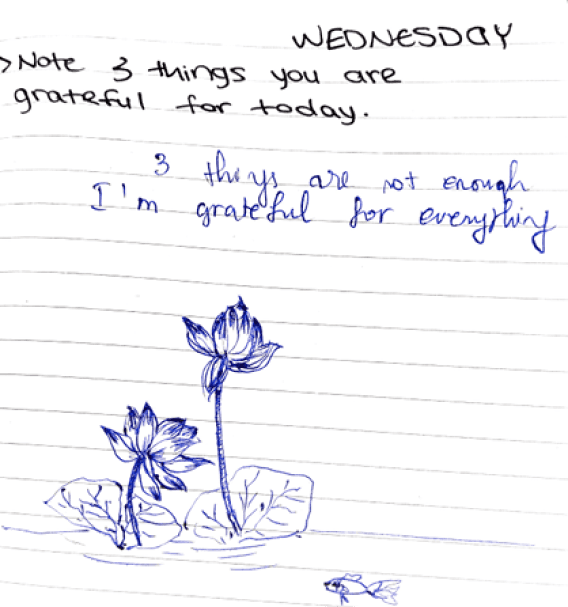 WEDNESDAY
>Note 3 things you are
grateful for today.
3 things are not enough
I'm grateful for everything